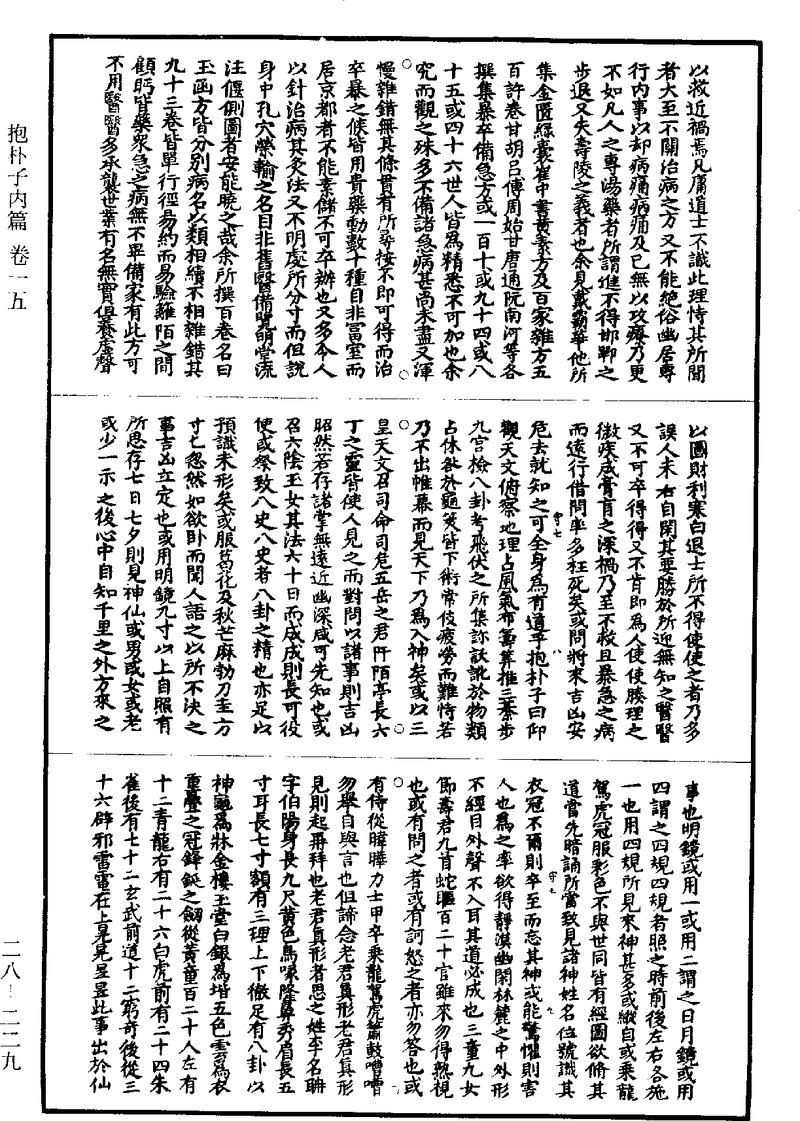 抱朴子内篇 卷一五
二八—二二九
以救近禍焉凡庸道士不識此理恃其所聞
者大至不關治病之方又不能絕俗幽居專
行內事以却病痛病痛及已無以攻療乃更
不如凡人之專湯藥者所謂進不得邯鄲之
步退又失壽陵之義者也余見戴霸華他所
集金匱綠囊崔中書黃素方及百家雜方五
百許卷甘胡呂傅周始甘唐通阮南河等各
撰集暴卒備急方或一百十或九十四或八
十五或四十六世人皆為精悉不可加也余
究而觀之殊多不備諸急病甚尚未盡又渾
漫雜錯無其條貫有所尋按不即可得而治
卒暴之候皆用貴藥動數十種自非富室而
居京都者不能素儲不可卒辦也又多令人
以針治病其灸法又不明處所分寸而但說
身中孔穴榮輸之名自非舊醫備覽明堂流
注偃側圖者安能曉之哉余所撰百卷名曰
玉函方皆分別病名以類相續不相雜錯其
九十三卷皆單行徑易約而易驗離陌之間
顧眄皆藥眾急之病無不畢備家有此方可
不用醫醫多承襲世業有名無實但養虛聲
以圖財利寒白退士所不得使使之者乃多
誤人未若自閑其要勝於所迎無知之醫醫
又不可卒得得又不肯即為人使使腠理之
微疾成膏肓之深禍乃至不救且暴急之病
而遠行借問率多枉死矣或問將來吉凶安
危去就知之可全身為有道乎抱朴子曰仰
觀天文俯察地理占風氣布籌筭推三棊步
九宮檢八卦考飛伏之所集診訞訛於物類
占休咎於龜筴皆下術常伎疲勞而難恃若
乃不出帷幕而見天下乃為入神矣或以三
皇天文召司命司危五岳之君阡陌亭長六
丁之靈皆使人見之而對問以諸事則吉凶
昭然若存諸掌無遠近幽深咸可先知也或
召六陰玉女其法六十日而成成則長可役
使或祭致八史八史者八卦之精也亦足以
預識未形矣或服葛花及秋芒麻勃刀圭方
寸匕忽然如欲卧而聞人語之以所不決之
事吉凶立定也或用明鏡九寸以上自照有
所思存七日七夕則見神仙或男或女或老
或少一示之後心中自知千里之外方來之
事也明鏡或用一或用二謂之日月鏡或用
四謂之四規四規者照之時前後左右各施
一也用四規所見來神甚多或縱目或乘龍
駕虎冠服彩色不與世同皆有經圖欲脩其
道當先暗誦所當致見諸神姓名位號識其
衣冠不爾則卒至而忘其神或能驚懼則害
人也為之率欲得靜漠幽閑林麓之中外形
不經目外聲不入耳其道必成也三童九女
節壽君九首蛇軀百二十官雖來勿得熟視
也或有問之者或有訶怒之者亦勿答也或
有侍從暐曄力士甲卒乘龍駕虎簫鼓嘈嘈
勿舉目與言也但諦念老君真形老君真形
見則起再拜也老君真形者思之姓李名聃
字伯陽身長九尺黃色鳥喙隆鼻秀眉長五
寸耳長七寸額有三理上下徹足有八卦以
神龜為牀金樓玉堂白銀為堦五色雲為衣
重疊之冠鋒鋋之劒從黃童百二十人左有
十二青龍右有二十六白虎前有二十四朱
雀後有七十二玄武前道十二窮奇後從三
十六辟邪雷電在上晃晃昱昱此事出於仙